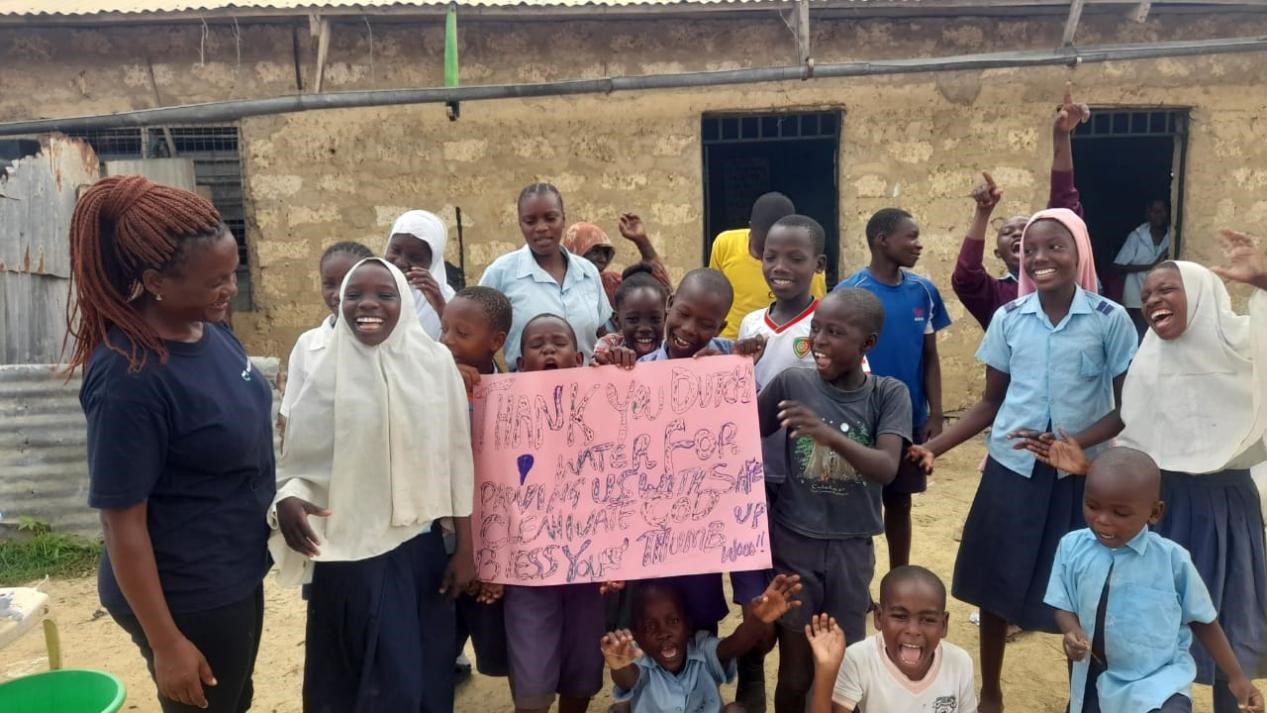 THANK YOU DUTCH
WATER FOR
PROVIDING US WITH SAFE
CLEAN WATE GOD
BLESS YOU! THUMB UP
WOOO!!